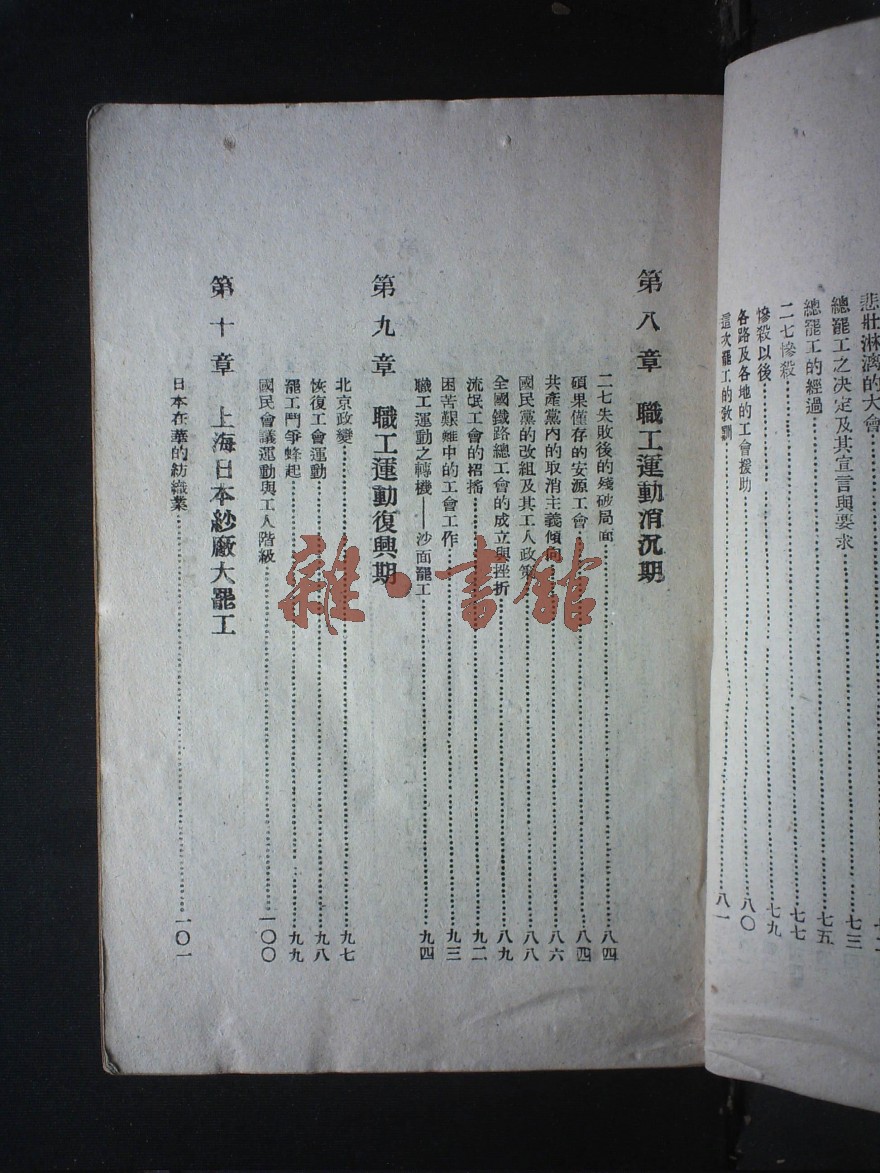 悲壯淋漓的大會
總罷工之決定及其宣言與要求……七三
總罷工的經過……七五
二七慘殺……七七
慘殺以後……七九
各路及各地的工會援助……八〇
這次罷工的教訓……八一
第八章 職工運動消沉期
二七失敗後的殘破局面……八四
碩果僅存的安源工會……八四
共產黨內的取消主義傾向……八六
國民黨的改組及其工人政策……八八
全國鐵路總工會的成立與挫折……八九
流氓工會的招搖……九二
困苦艱難中的工會工作……九三
職工運動之轉機——沙面罷工……九四
第九章 職工運動復興期
北京政變……九七
恢復工會運動……九八
罷工鬥爭蜂起……九九
國民會議運動與工人階級……一〇〇
第十章 上海日本紗廠大罷工
日本在華的紡織業……一〇一
雜·書館